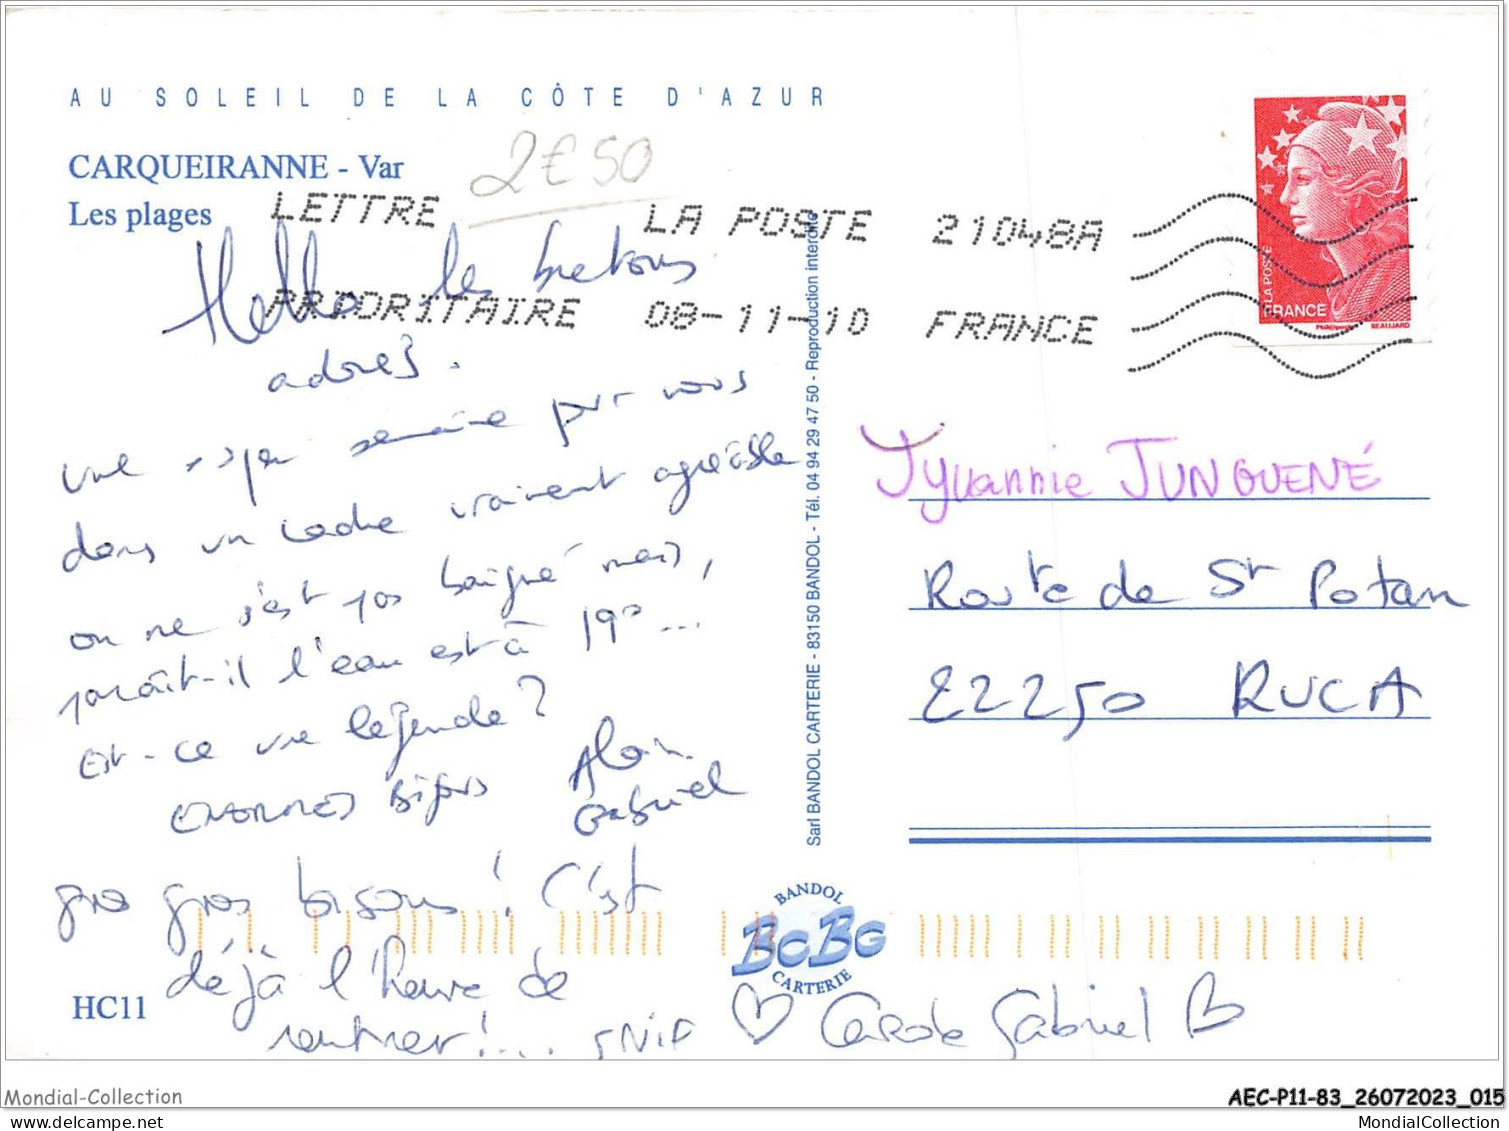 AU SOLEIL DE LA CÔTE D'AZUR
CARQUEIRANNE - Var
Les plages
2€50
LETTRE LA POSTE 21048A
PRIORITAIRE 08-11-10 FRANCE
LA POSTE
FRANCE
BEAUJARD
Hello les bretons
adorés.
une semaine pour vous
dans un cadre vraiment agréable
on ne s'est pas baigné mais,
paraît-il l'eau est à 19° ...
Est-ce une légende ?
ENORMES Bisous Alain
Gabriel
gros gros bisous ! C'est
déjà l'heure de
rentrer !... SNIF ♡ Carole Gabriel
HC11
Sarl BANDOL CARTERIE - 83150 BANDOL - Tél. 04 94 29 47 50 - Reproduction interdite
BANDOL
BCBG
CARTERIE
JUNGUENÉ
Route de St Potan
22250 RUCA
Mondial-Collection
AEC-P11-83_26072023_015
www.delcampe.net
MondialCollection